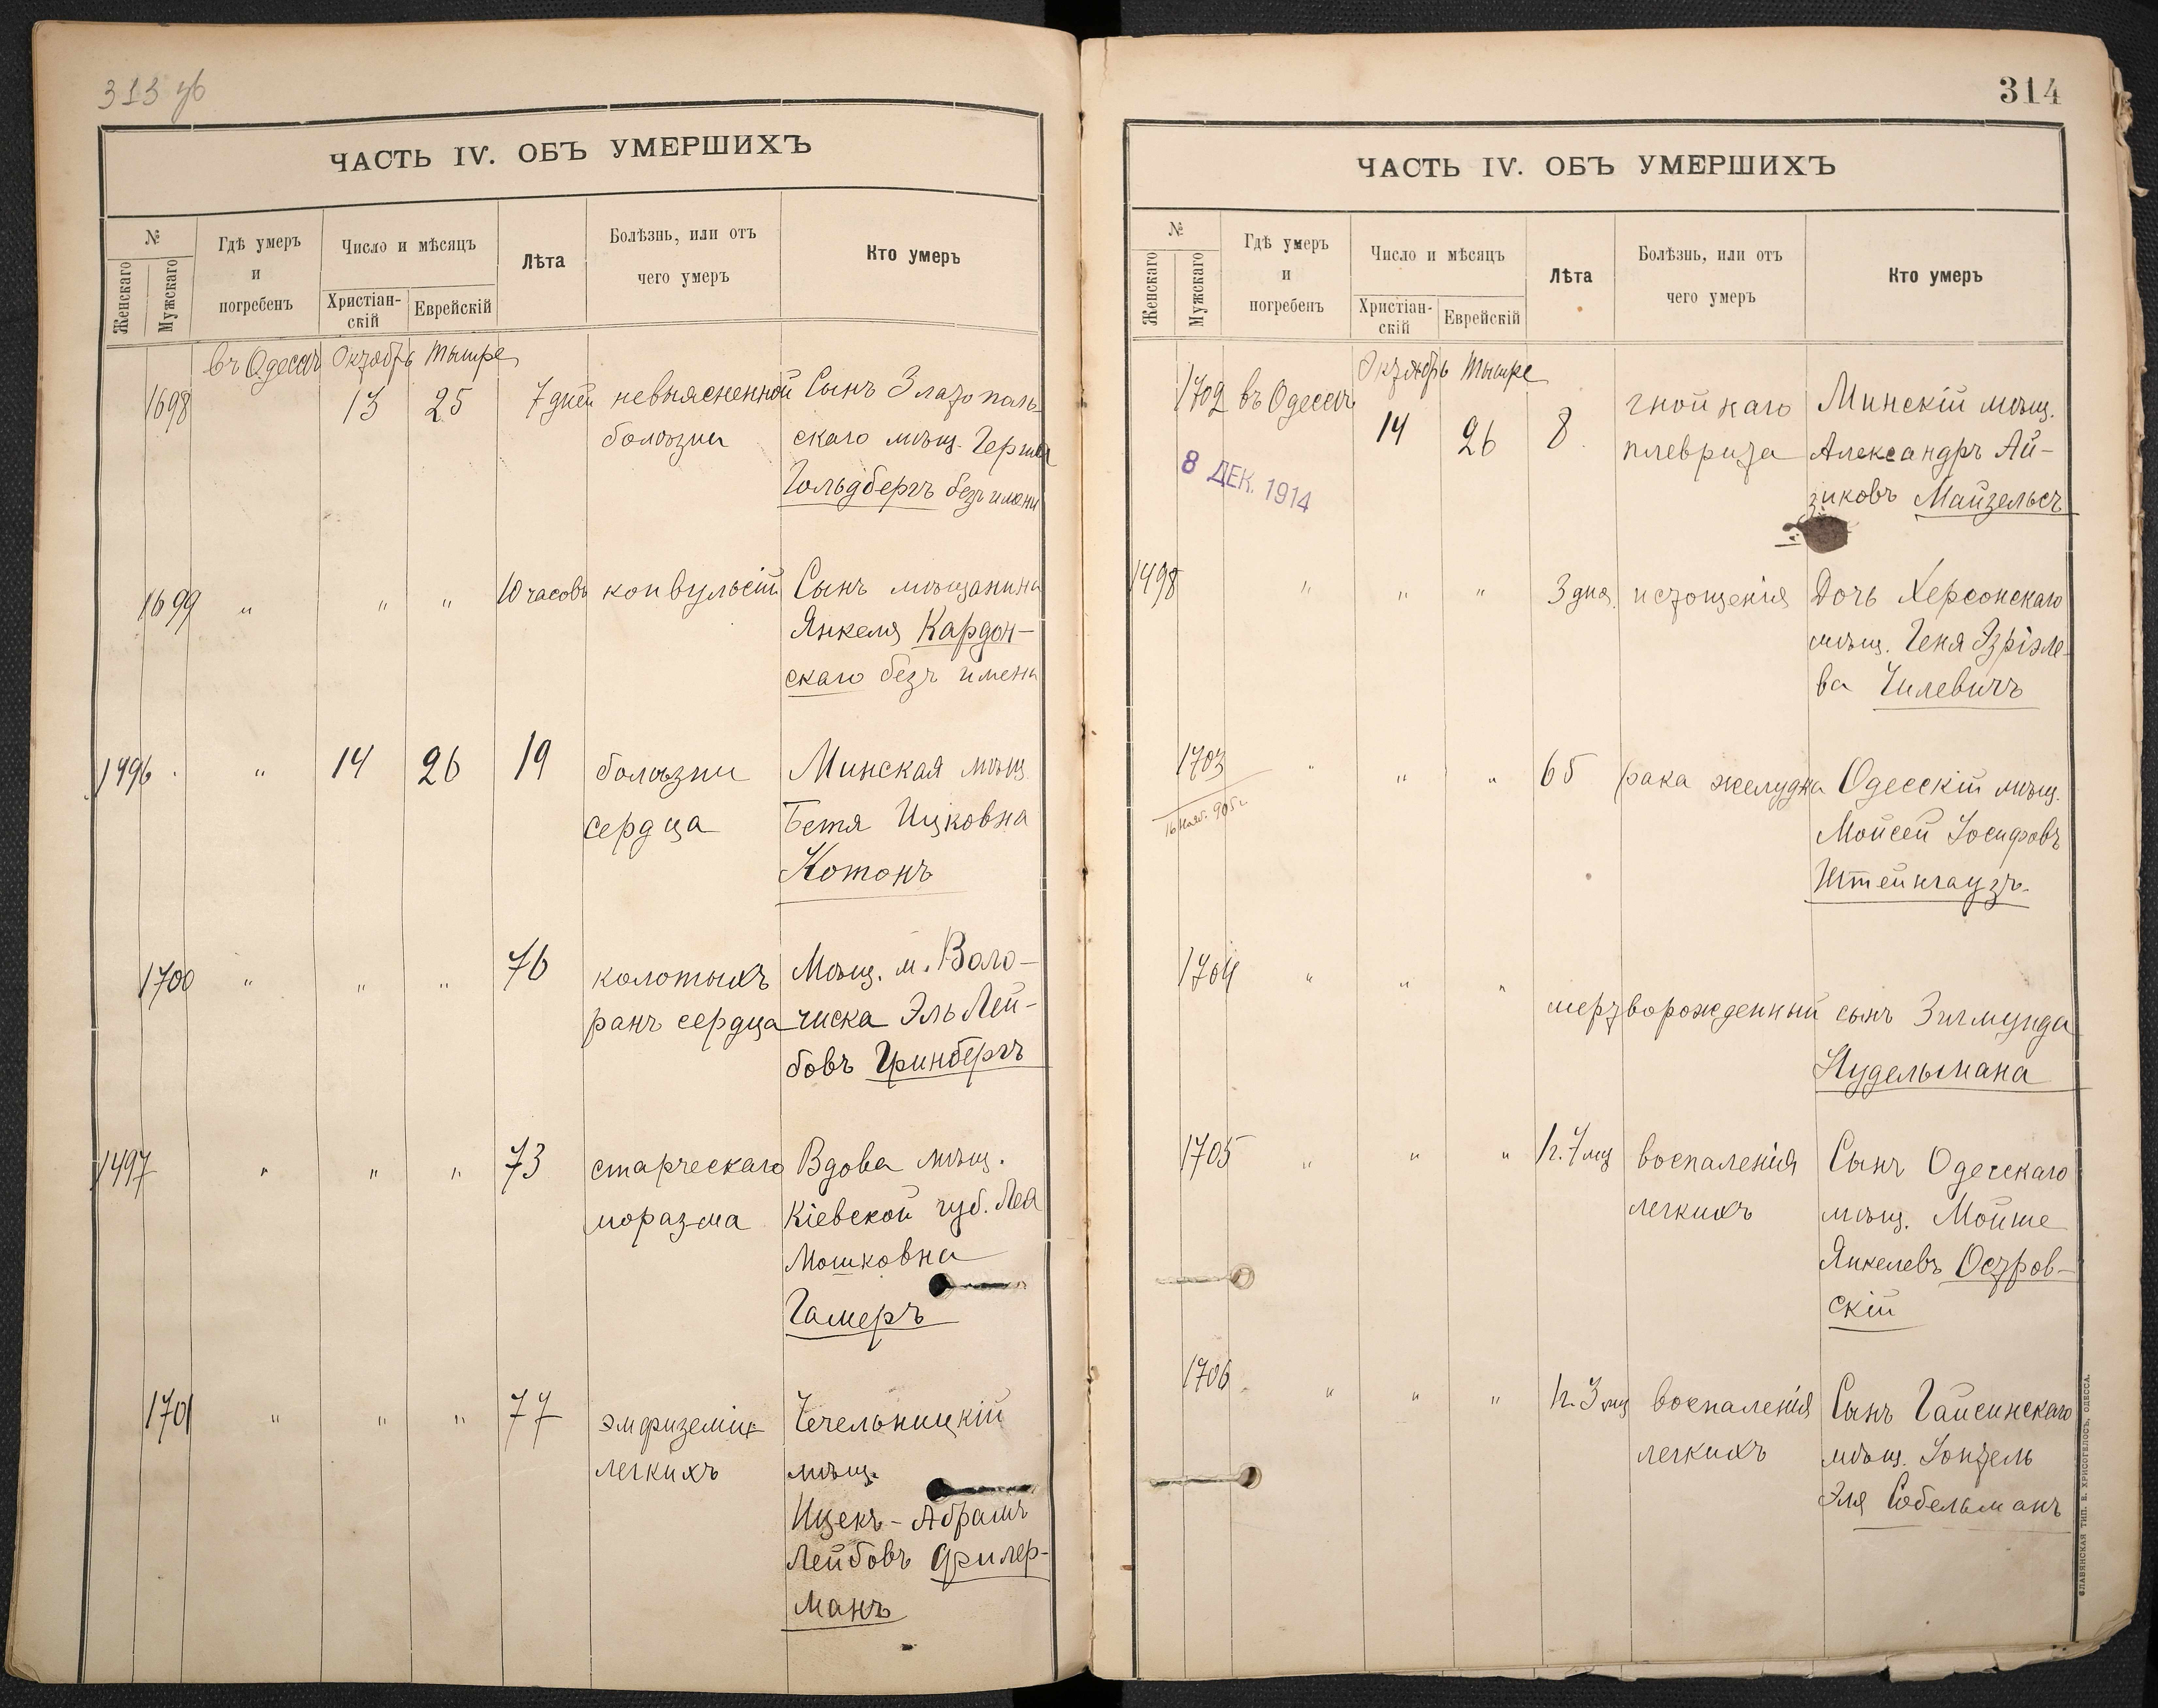 313 об
ЧАСТЬ IV. ОБЪ УМЕРШИХЪ
№
Женскаго
Мужскаго
Гдѣ умеръ
и
погребенъ
Число и мѣсяцъ
Христіан-
скій
Еврейскій
Лѣта
Болѣзнь, или отъ
чего умеръ
Кто умеръ
въ Одессѣ Октябрь Тышре
1698 13 25 7 дней невыясненной Сынъ Златополь-
болѣзни скаго мѣщ. Герша
Гольдбергъ безъ имени
1699 " " " 10 часовъ конвульсій Сынъ мѣщанина
Янкеля Кардон-
скаго безъ имени
1496 " 14 26 19 болѣзни Минская мѣщ.
сердца Бетя Ицковна
Котонъ
1700 " " " 76 колотыхъ Мѣщ. м. Воло-
ранъ сердца чиска Эль Лей-
бовъ Гринбергъ
1497 " " " 73 старческаго Вдова мѣщ.
моразма Кіевской губ. Лея
Мошковна
Гамеръ
1701 " " " 77 эмфиземіи Чечельницкій
легкихъ мѣщ.
Ицекъ-Абрамъ
Лейбовъ Филер-
манъ
314
ЧАСТЬ IV. ОБЪ УМЕРШИХЪ
№
Женскаго
Мужскаго
Гдѣ умеръ
и
погребенъ
Число и мѣсяцъ
Христіан-
скій
Еврейскій
Лѣта
Болѣзнь, или отъ
чего умеръ
Кто умеръ
Октябрь Тышре
1702 въ Одессѣ 14 26 8 гнойнаго Минскій мѣщ.
плеврита Александръ Ай-
зиковъ Майзельсъ
8 ДЕК. 1914
1498 " " " 3 дня истощенія Дочь Херсонскаго
мѣщ. Геня Эзріэле-
ва Чилевичъ
1703 " " " 65 рака желудка Одесскій мѣщ.
16 нояб. 905 г.
Мойсей Іосифовъ
Штейнгаузъ
1704 " " "
мертворожденный сынъ Зигмунда
Нудельмана
1705 " " " 1 г. 7 мц воспаленія Сынъ Одесскаго
легкихъ мѣщ. Мойше
Янкелевъ Остров-
скій
1706 " " " 1 г. 3 мц воспаленія Сынъ Гайсинскаго
легкихъ мѣщ. Іонтель
Эля Собельманъ
СЛАВЯНСКАЯ ТИП. Н. ХРИСОГЕЛОСЪ, ОДЕССА.